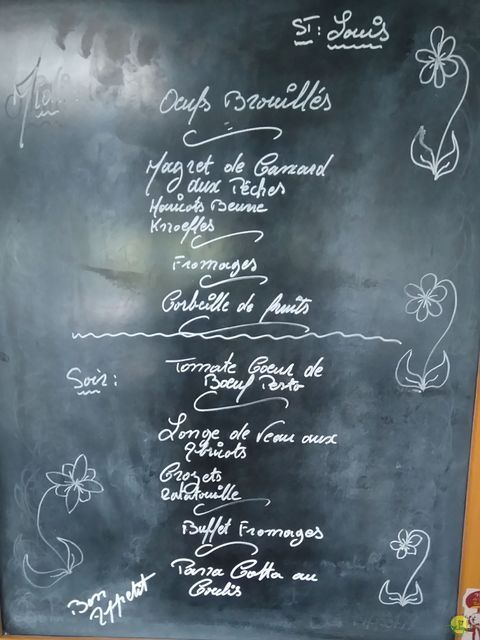 ST: Louis
Midi:
Oeufs Brouillés
Magret de Canard
aux Pêches
Haricots Beurre
Knoeffles
Fromages
Corbeille de fruits
Soir:
Tomate Coeur de
Boeuf Pesto
Longe de Veau aux
Abricots
Crozets
Ratatouille
Buffet Fromages
Panna Cotta au
Coulis
Bon
Appetit